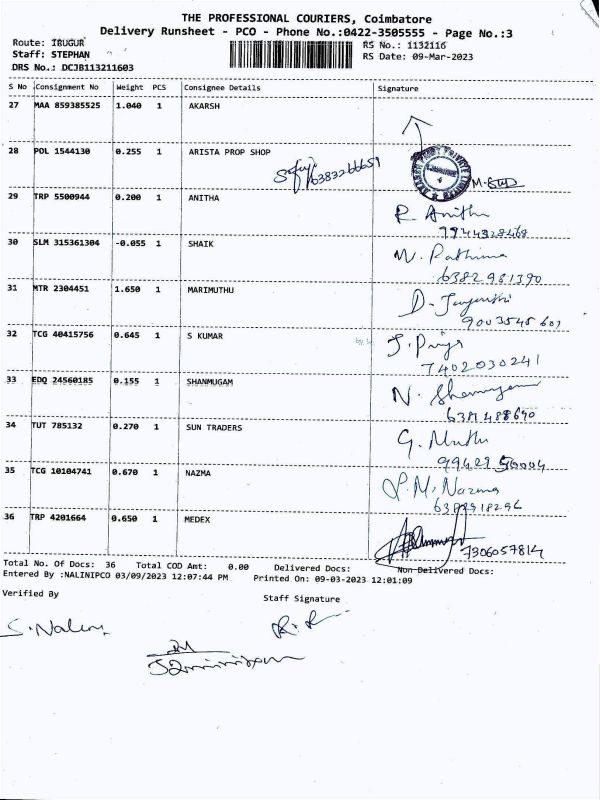 THE PROFESSIONAL COURIERS, Coimbatore
Delivery Runsheet - PCO - Phone No.:0422-3505555 - Page No.:3
Route: IRUGUR
RS No.: 1132116
Staff: STEPHAN
RS Date: 09-Mar-2023
DRS No.: DCJB113211603
S No Consignment No Weight PCS Consignee Details Signature
27 MAA 859385525 1.040 1 AKARSH
28 POL 1544130 0.255 1 ARISTA PROP SHOP
29 TRP 5500944 0.200 1 ANITHA R. Anitha
30 SLM 315361304 -0.055 1 SHAIK
6382 981390
31 MTR 2304451 1.650 1 MARIMUTHU
32 TCG 40415756 0.645 1 S KUMAR J. Priya
7402030241
33 EDQ 24560185 0.155 1 SHANMUGAM
34 TUT 785132 0.270 1 SUN TRADERS G. Muthu
35 TCG 10104741 0.670 1 NAZMA P.M. Nazma
36 TRP 4201664 0.650 1 MEDEX
7306057814
Total No. Of Docs: 36 Total COD Amt: 0.00 Delivered Docs: Non Delivered Docs:
Entered By :NALINIPCO 03/09/2023 12:07:44 PM Printed On: 09-03-2023 12:01:09
Verified By
Staff Signature